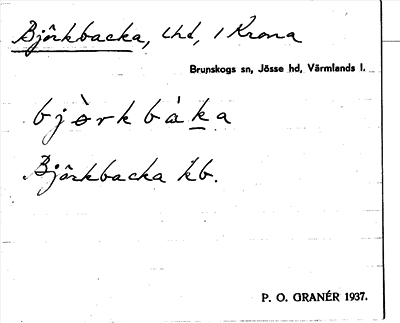 Björkbacka, lhd, 1 Krona
Brunskogs sn, Jösse hd, Värmlands l.
bjòrkbàka
Björkbacka kb.
P. O. GRANÉR 1937.